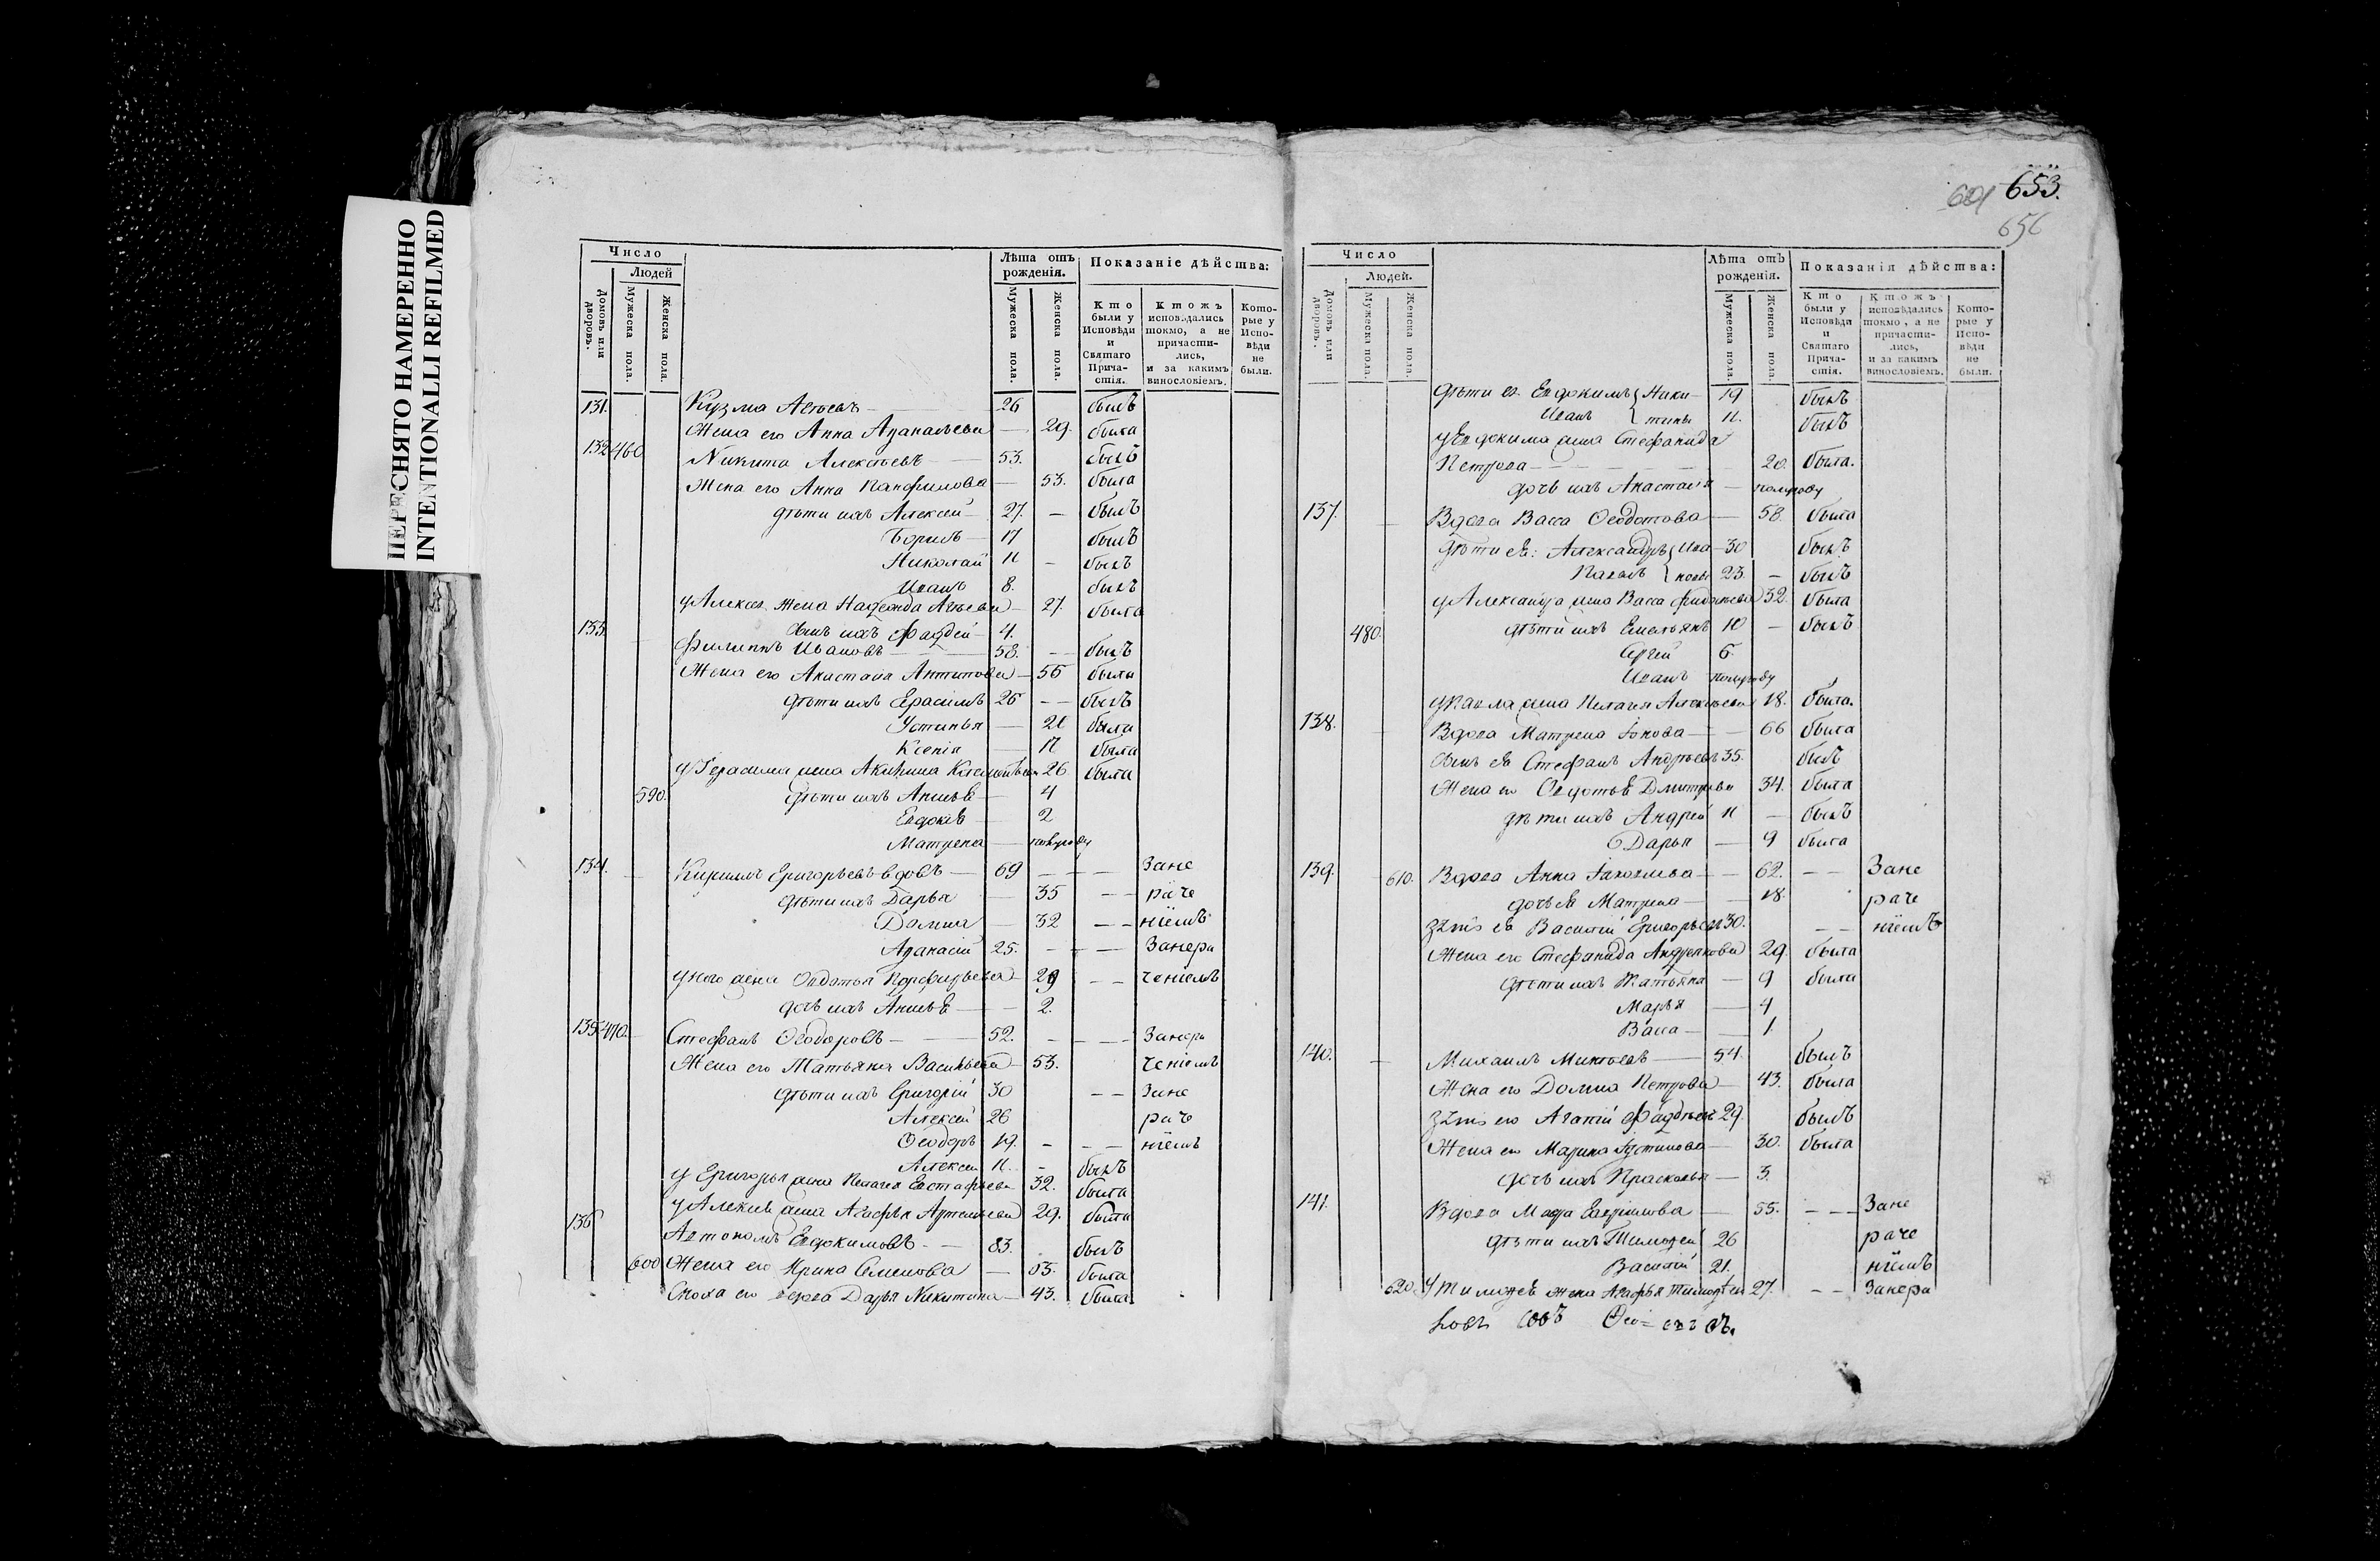 ПЕРЕСНЯТО НАМЕРЕННО
INTENTIONALLI REFILMED
Число
Людей
Домовъ или дворовъ.
Мужеска пола.
Женска пола.
Лѣта отъ рожденія.
Мужеска пола.
Женска пола.
Показаніе дѣйства:
Кто были у Исповѣди и Святаго Прича-стія.
Ктожъ исповѣдались токмо, а не причасти-лись, и за какимъ винословіемъ.
Кото-рые у Испо-вѣди не были.
131. Кузма 26 былъ
Жена его Анна 29. была
132 460 Никита Алексѣевъ 53. былъ
Жена его Анна Панфилова 53. была
дѣти ихъ Алексей 27. былъ
Борисъ 17 былъ
Николай 11 былъ
Иванъ 8. былъ
у Алексѣя жена 27. была
сынъ ихъ Фаддей 4.
133. Филиппъ Ивановъ 58. былъ
Жена его Анастасія Антипова 56 была
дѣти ихъ Герасимъ 26 былъ
Устинья 21 была
Ксенія 17 была
у Герасима жена Акилина 26 была
590. дѣти ихъ Анисья 4
Евдокія 2
Матрена полугоду
134. Кирилъ Григорьевъ вдовъ 69 Зане
дѣти ихъ Дарья 35 раче
Домна 32 ніемъ
Афанасій 25. Занера
у него жена Федотья Порфирьева 29 ченіемъ
дочь ихъ Анисья 2.
135. 470. Стефанъ Ѳеодоровъ 52. Занера
Жена его Татьяна Васильева 53. ченіемъ
дѣти ихъ Григорій 30 Зане
Алексей 26 раче
Ѳеодоръ 19. ніемъ
Алексей 11. былъ
у Григорья жена Пелагея Евстафьева 32. была
у Алексѣя жена Агафья Артемьева 29. была
136 Автономъ Евдокимовъ 83. былъ
600 Жена его Ирина Семенова была
Сноха его вдова Дарья Никитина 43. была
601 653.
656
Число
Людей.
Домовъ или дворовъ.
Мужеска пола.
Женска пола.
Лѣта отъ рожденія.
Мужеска пола.
Женска пола.
Показанія дѣйства:
Кто были у Исповѣди и Святаго Прича-стія.
Ктожъ исповѣдались токмо, а не причасти-лись, и за какимъ винословіемъ.
Кото-рые у Испо-вѣди не были.
дѣти ея Евдокимъ Ники- 19 былъ
Иванъ тины 11. былъ
у Евдокима жена Стефанида
Петрова 20. была.
дочь ихъ Анастасія полугоду
137. Вдова Васса Ѳеодотова 58. была
дѣти ея: Александръ Ива- 30 былъ
Павелъ новы 23. былъ
у Александра жена Васса 32. была
480. дѣти ихъ Емельянъ 10 былъ
Сергей 6.
Иванъ полугоду
у Павла жена Пелагея Алексѣева 18. была.
138. Вдова Матрена Іонова 66 была
сынъ ея Стефанъ Андреевъ 35. былъ
Жена его Федотья Дмитріева 34. была
дѣти ихъ Андрей 11 былъ
Дарья 9 была
139. 610. Вдова Анна Іаковлева 62. Зане
дочь ея Матрена 18. раче
зять ея Василій Григорьевъ 30. ніемъ
Жена его Стефанида Андреянова 29. была
дѣти ихъ Татьяна 9 была
Марья 4
Васса 1
140. Михаилъ 54. былъ
Жена его Домна Петрова 43. была
зять его Фаддѣевъ 29. былъ
Жена его Марина Іустинова 30. была
дочь ихъ Прасковья 3.
141. Вдова 55. Зане
дѣти ихъ Тимофей 26 раче
Василій 21. ніемъ
620. у Тимофея жена Агафья 27. Занера